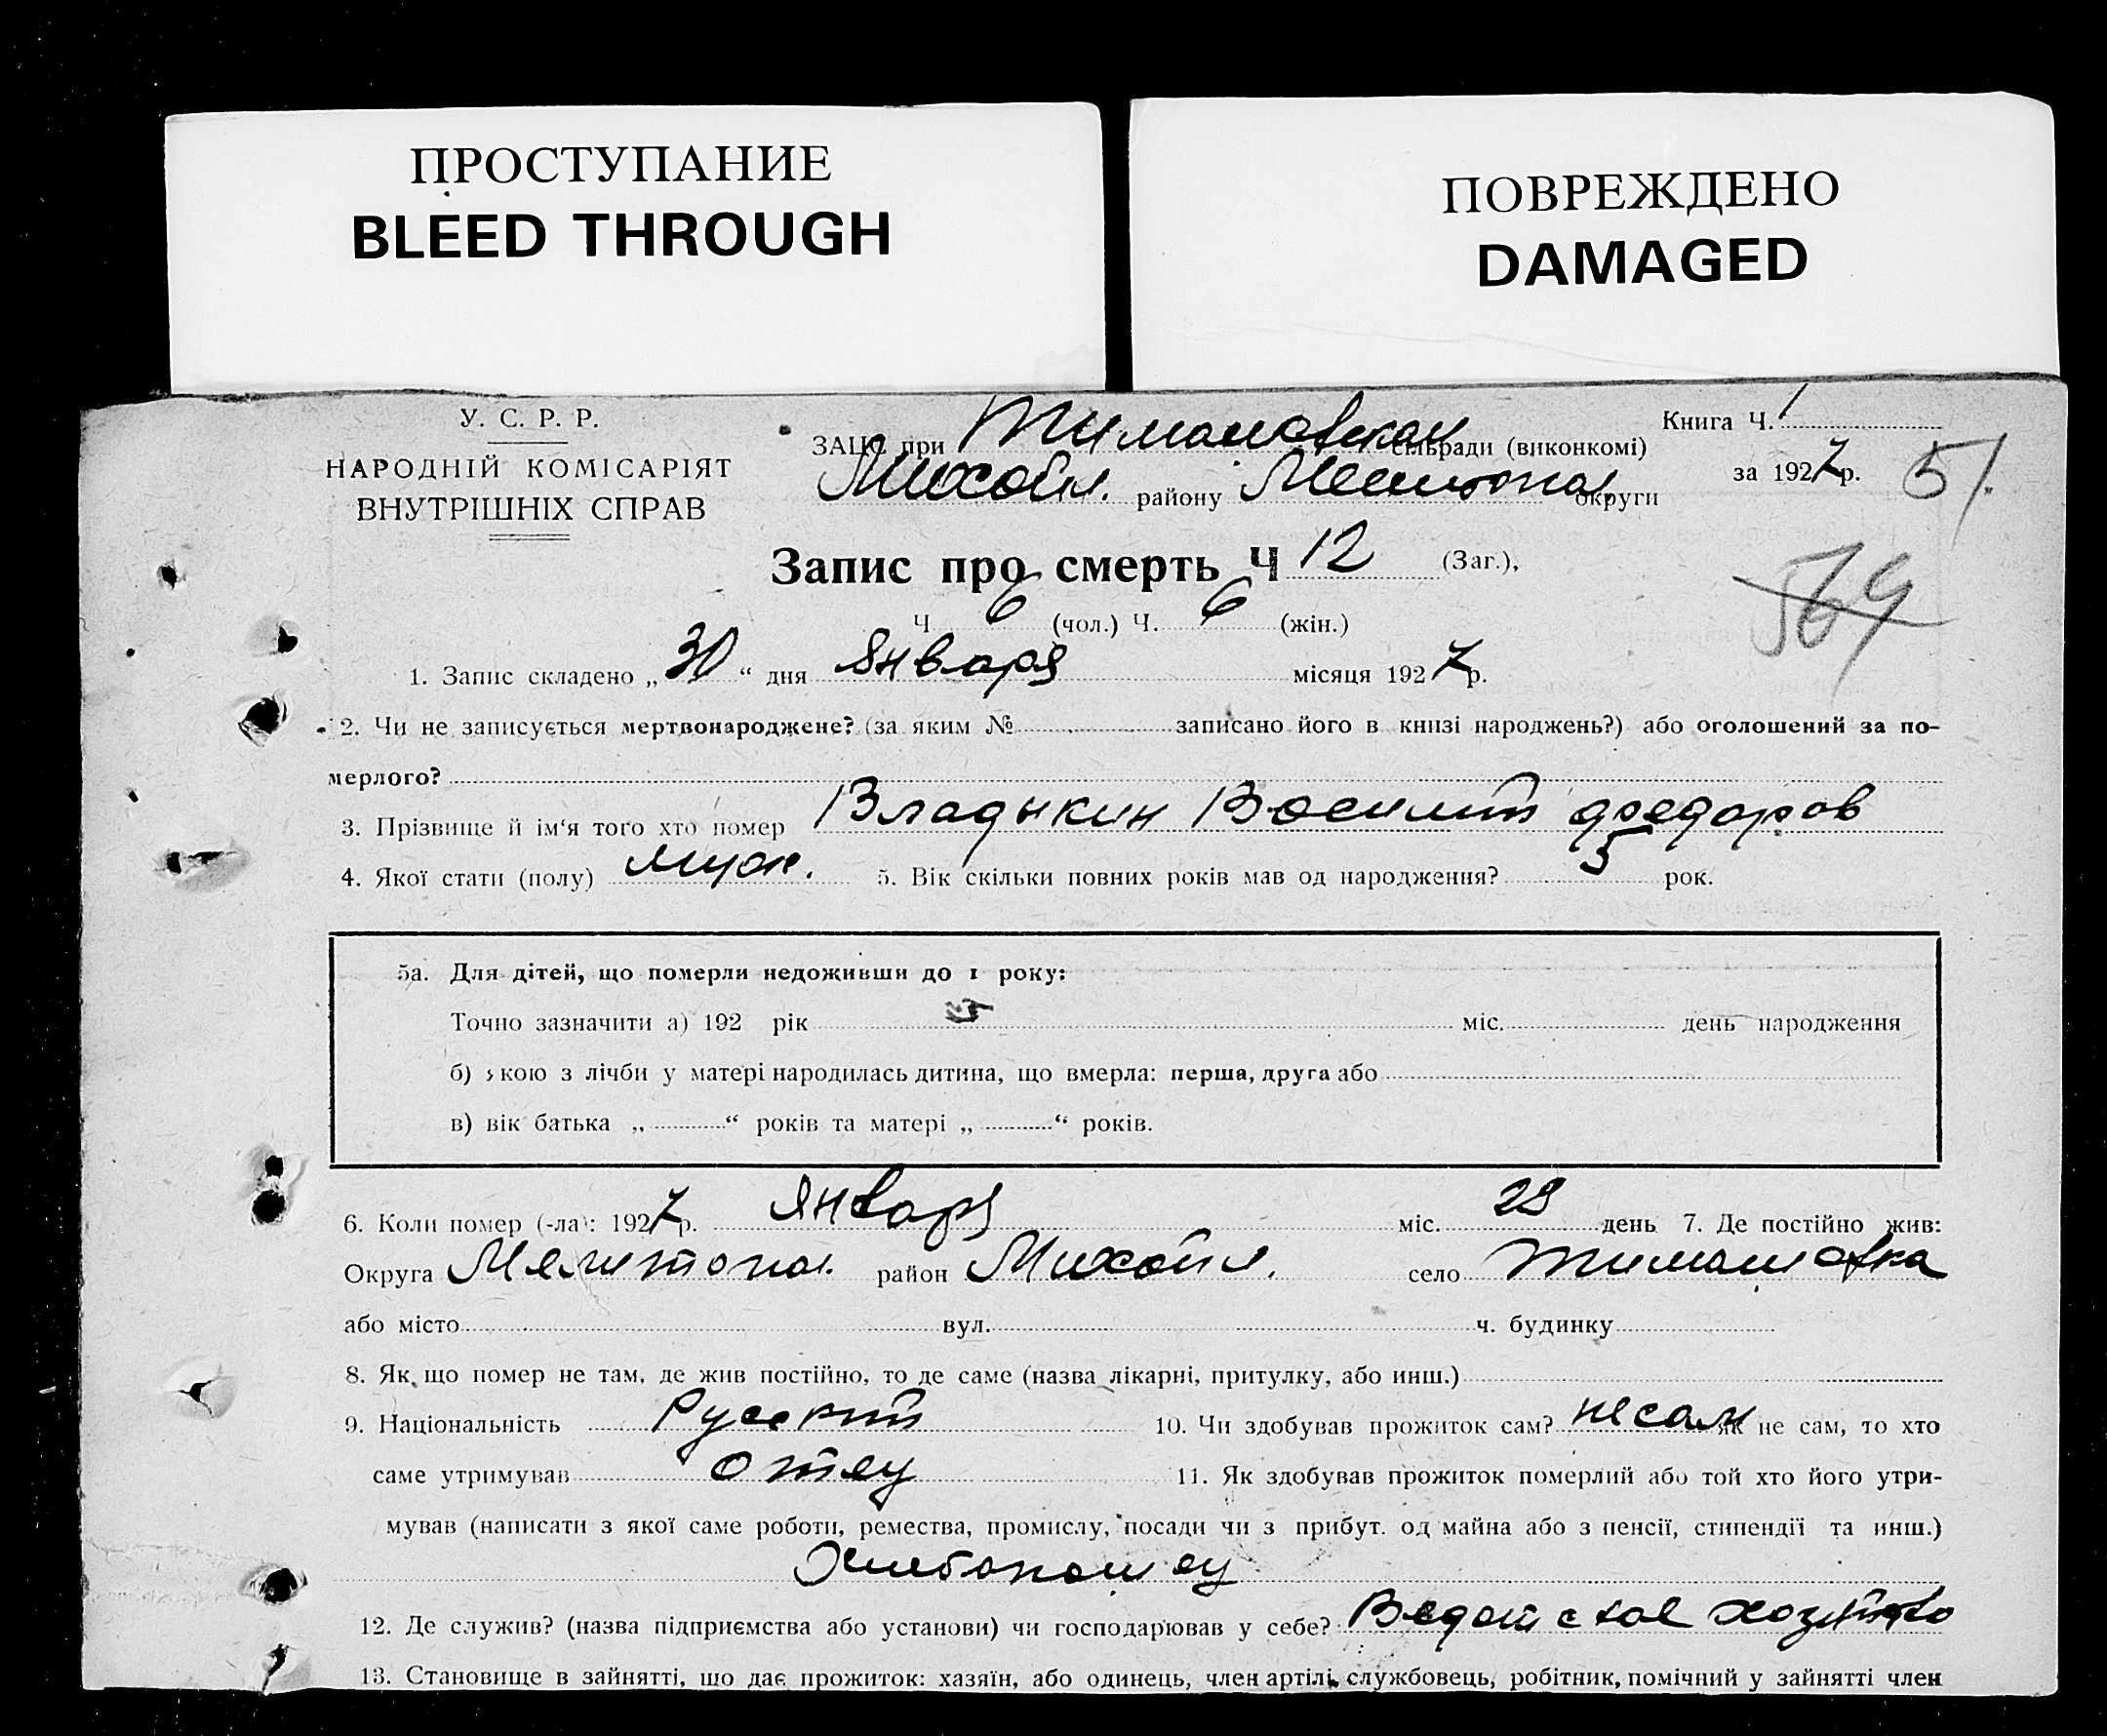 ПРОСТУПАНИЕ
BLEED THROUGH
ПОВРЕЖДЕНО
DAMAGED
У. С. Р. Р.
НАРОДНІЙ КОМІСАРІЯТ
ВНУТРІШНІХ СПРАВ
Книга Ч. 1
ЗАЦС при Тимашовском сільради (виконкомі)
за 1927 р. 51.
Михайл. району Мелитопол округи
Запис про смерть Ч 12 (Заг.),
569
Ч 6 (чол.) Ч. 6 (жін.)
1. Запис складено „ 30 “ дня Января місяця 1927 р.
2. Чи не записується мертвонароджене? (за яким № записано його в книзі народжень?) або оголошений за по-
мерлого?
3. Прізвище й ім‘я того хто помер Владыкин Василий Федоров
4. Якої стати (полу) муж. 5. Вік скільки повних років мав од народження? 5 рок.
5а. Для дітей, що померли недоживши до 1 року:
Точно зазначити а) 192 рік міс. день народження
б) якою з лічби у матері народилась дитина, що вмерла: перша, друга або
в) вік батька „ “ років та матері „ “ років.
6. Коли помер (-ла): 1927 р. Января міс. 28 день 7. Де постійно жив:
Округа Мелитопол. район Михайл. село Тимашовка
або місто вул. ч. будинку
8. Як що помер не там, де жив постійно, то де саме (назва лікарні, притулку, або инш.)
9. Національність Русский 10. Чи здобував прожиток сам? не сам як не сам, то хто
саме утримував отец 11. Як здобував прожиток померлий або той хто його утри-
мував (написати з якої саме роботи, ремества, промислу, посади чи з прибут. од майна або з пенсії, стипендії та инш.)
Хлебопашец
12. Де служив? (назва підприємства або установи) чи господарював у себе? Ведет свое хозяйство
13. Становище в зайнятті, що дає прожиток: хазяїн, або одинець, член артілі, службовець, робітник, помічний у зайнятті член